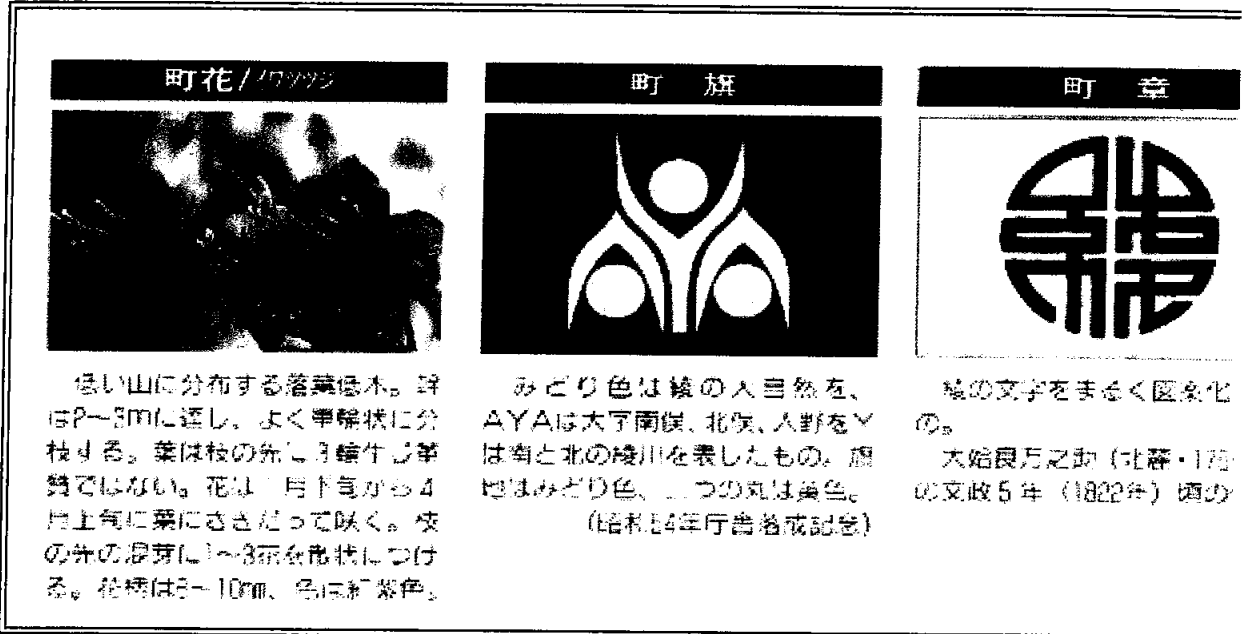 町花/イワツツジ
低い山に分布する落葉低木。幹
は2〜3mに達し、よく車輪状に分
枝する。葉は枝の先に3輪生し革
質ではない。花は 月下旬から4
月上旬に葉にさきだって咲く。枝
の先の混芽に1〜3花を散状につけ
る。花柄は 〜10mm、色は紅紫色。
町 旗
みどり色は綾の大自然を、
AYAは大字南俣、北俣、入野をY
は南と北の綾川を表したもの。旗
地はみどり色、三つの丸は黄色。
(昭和54年庁舎落成記念)
町 章
綾の文字をまるく図案化
の。
大始良万之助(北 ・17
の文政5年(1822年)頃の